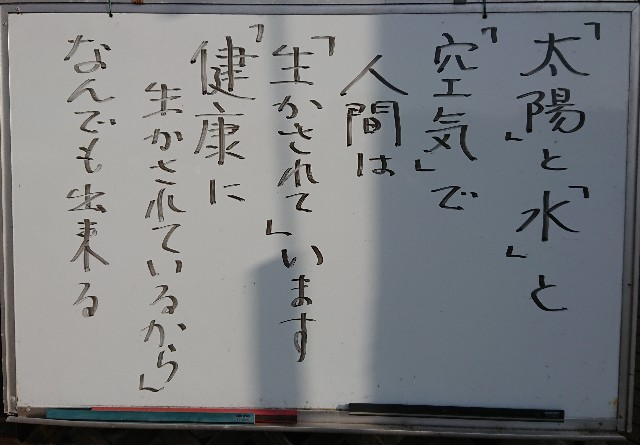 「太陽」と「水」と
「空気」で
人間は
「生かされて」います
「健康に
生かされているから」
なんでも出来る